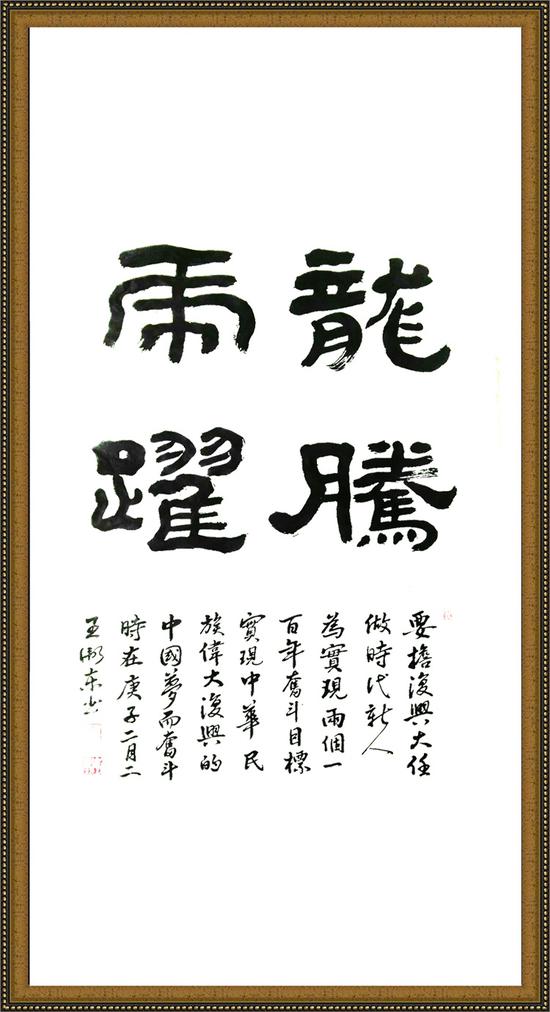 龍騰
虎躍
要擔復興大任
做時代新人
為實現兩個一
百年奮斗目標
實現中華民
族偉大復興的
中國夢而奮斗
時在庚子二月二
王东书